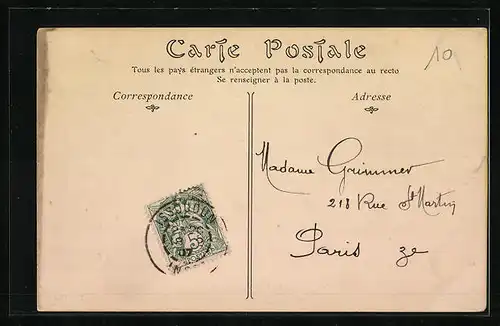 Carte Postale
10
Tous les pays étrangers n'acceptent pas la correspondance au recto
Se renseigner à la poste.
Correspondance
Adresse
Madame Grimmer
218 Rue St Martin
Paris 3e
5